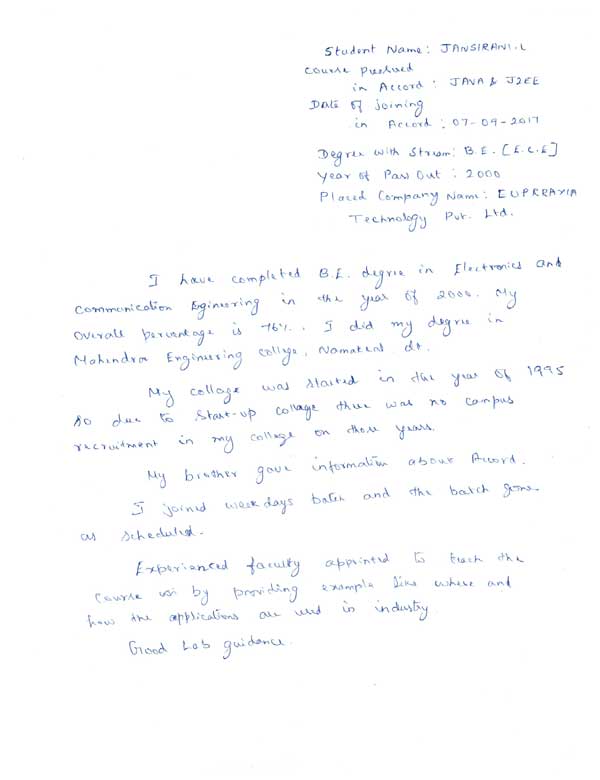 Student Name: JANSIRANI.L
Course pursued
in Accord : JAVA & J2EE
Date of joining
in Accord : 07-09-2017
Degree with Stream: B.E. [E.C.E]
Year of Pass Out : 2000
Placed Company Name: EUPRRAXIA
Technology Pvt. Ltd.
I have completed B.E. degree in Electronics and
Communication Egineering in the year of 2000. My
Overall percentage is 76%. I did my degree in
Mahindra Engineering college, Namakkal dt.
My collage was started in the year of 1995
so due to start-up collage there was no campus
recruitment in my college on those years.
My brother gave information about Accord.
I joined weekdays batch and the batch gone
as scheduled.
Experienced faculty appointed to teach the
course by providing example like where and
how the applications are used in industry.
Good Lab guidance.